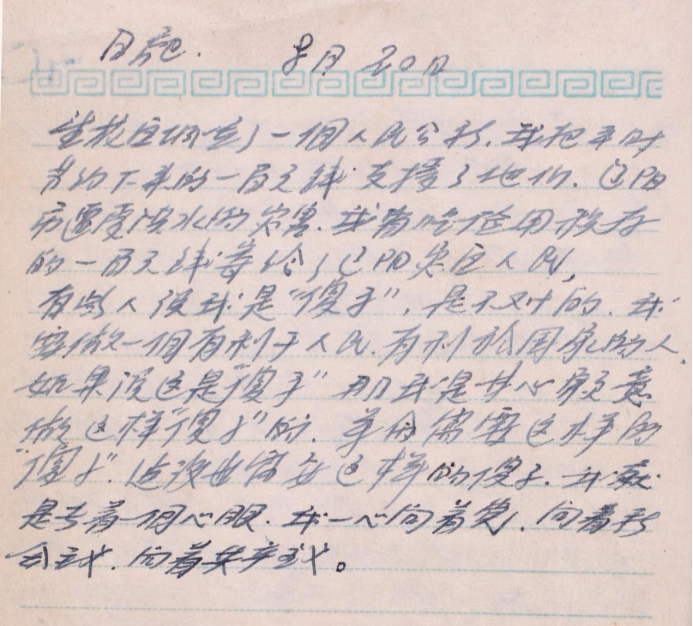 日記. 8月20日
生在抚順市了一個人民公社.我把平时
节约下来的一百元钱.支援了他们.辽阳
市遭受洪水的灾害.我省吃俭用积存
的一百元钱寄给了辽阳灾区人民,
有些人说我是“傻子”,是不对的.我
要做一個有利于人民.有利於国家的人.
如果说这是“傻子”那我是甘心願意
做这样“傻子”的.革命需要这样的
“傻子”.建设也需要这样的傻子.我就
是长着一個心眼.我一心向着党.向着社
会主义.向着共产主义。